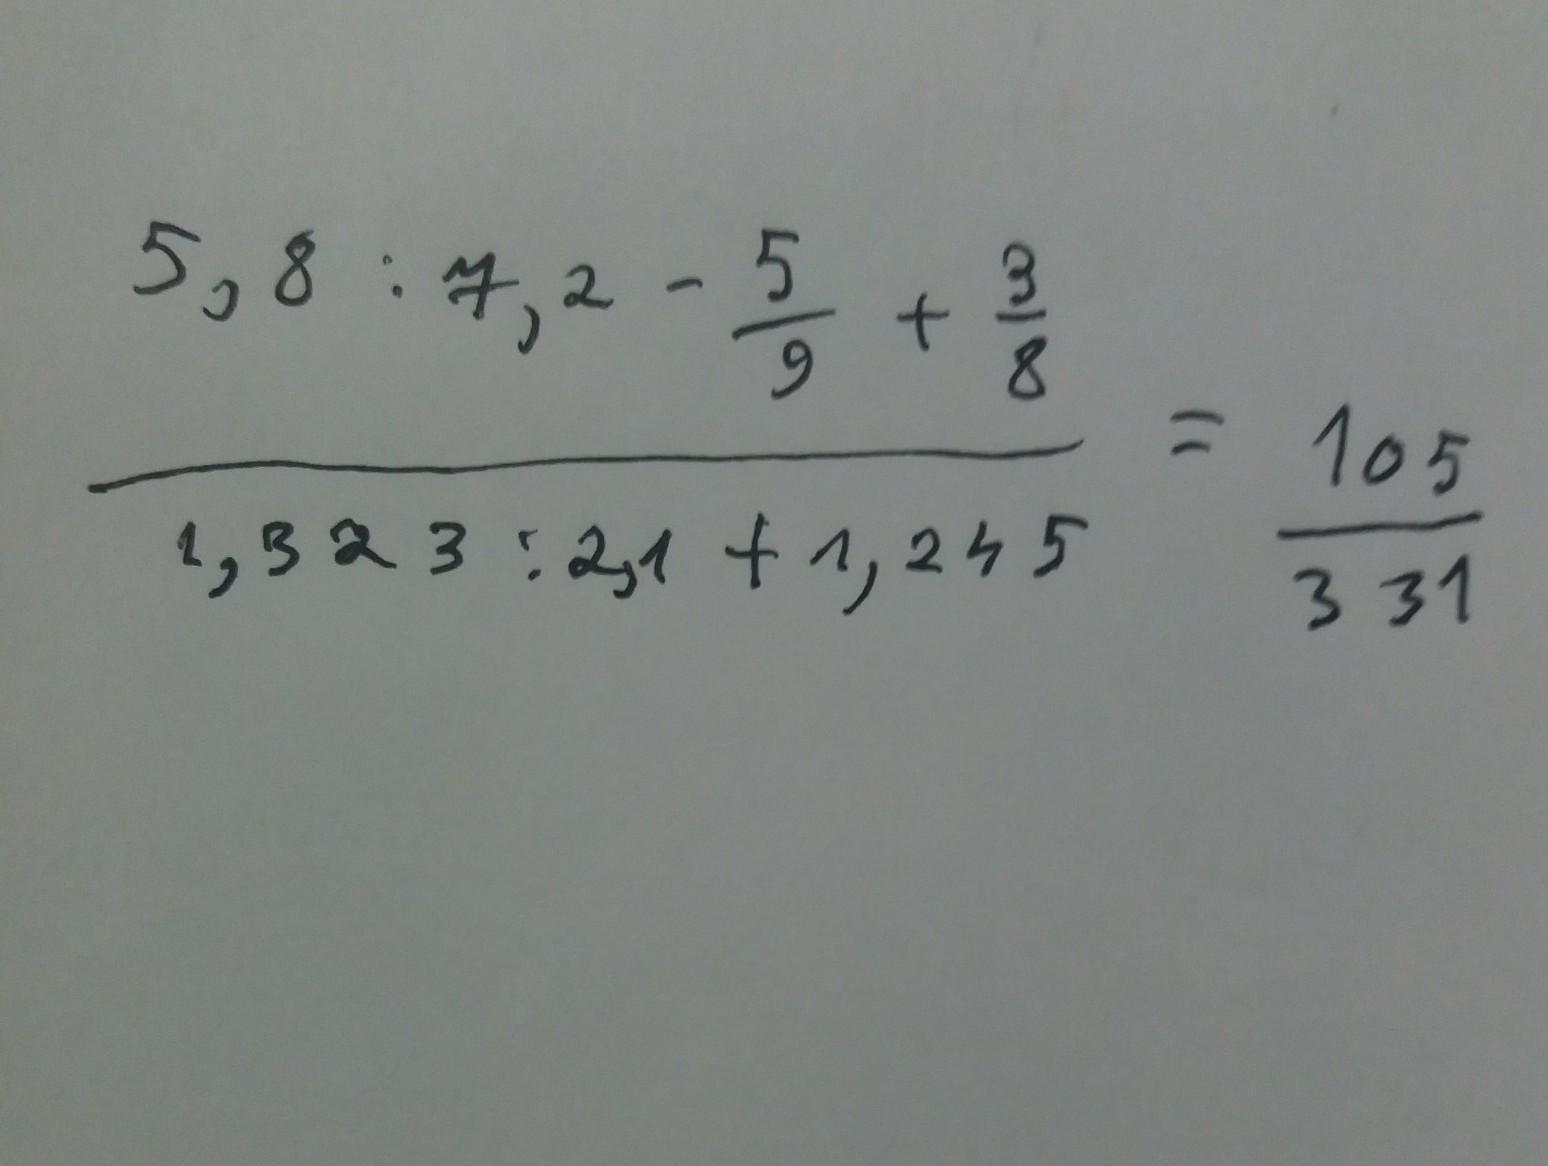 5,8 : 7,2 - 5/9 + 3/8
1,323 : 2,1 + 1,245
= 105/331